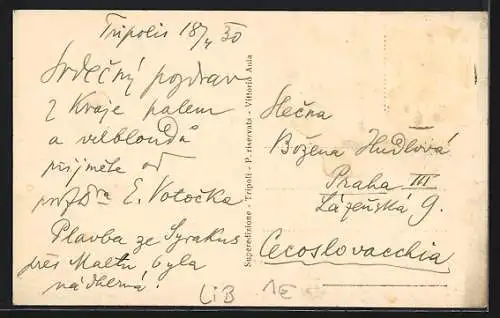 Tripolis 18/4 30
Srdečný pozdrav
z Kraje palem
a velbloudů
přijměte od
prof. Dra E. Votočka
Plavba ze Syrakus
přes Maltu byla
nádherná!
Superedizione - Tripoli - P. riservata - Vittorio Aula
Slečna
Božena Hudlová
Praha III
Lázeňská 9.
Cecoslovacchia
LiB
1E